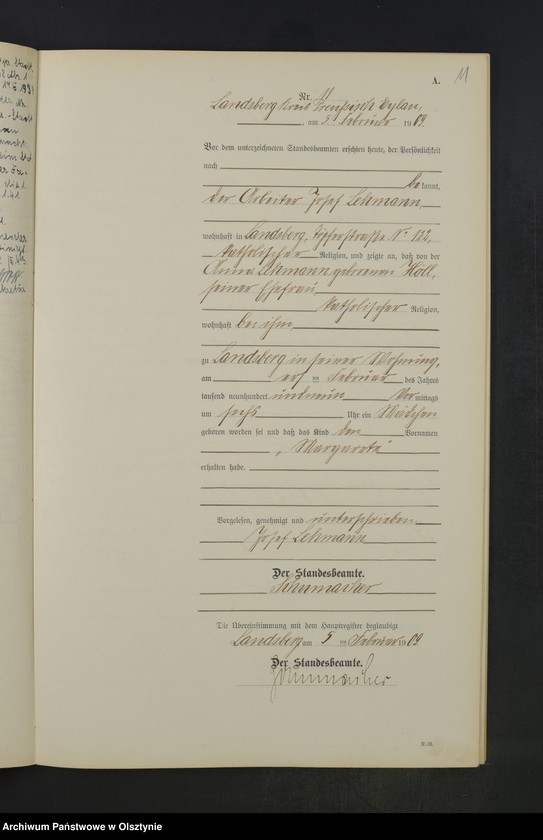 A. 11
Nr. 11
Landsberg Kreis Preußisch Eylau,
, am 5 Februar 1909.
Vor dem unterzeichneten Standesbeamten erschien heute, der Persönlichkeit
nach
be kannt,
der Arbeiter Josef Lehmann,
wohnhaft in Landsberg, Töpferstraße Nr 122,
katholischer Religion, und zeigte an, daß von der
Anna Lehmann geborenen Höll,
seiner Ehefrau
katholischer Religion,
wohnhaft bei ihm
zu Landsberg in seiner Wohnung,
am ten Februar des Jahres
tausend neunhundert und neun Vor mittags
um sechs Uhr ein Mädchen
geboren worden sei und daß das Kind den Vornamen
„Margarete"
erhalten habe.
Vorgelesen, genehmigt und unterschrieben
Josef Lehmann
Der Standesbeamte.
Schumacher
Die Übereinstimmung mit dem Hauptregister beglaubigt
Landsberg am 5 ten Februar 1909.
Der Standesbeamte.
Schumacher
Archiwum Państwowe w Olsztynie